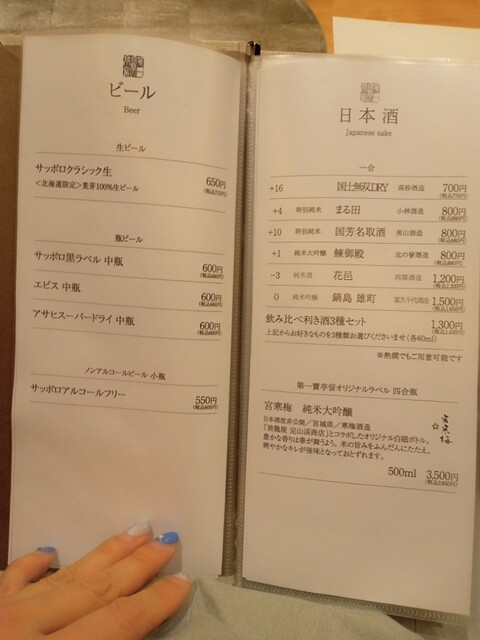 ビール
Beer
生ビール
サッポロクラシック生 650円
＜北海道限定＞麦芽100%生ビール (税込715円)
瓶ビール
サッポロ黒ラベル 中瓶 600円
(税込660円)
エビス 中瓶 600円
(税込660円)
アサヒスーパードライ 中瓶 600円
(税込660円)
ノンアルコールビール 小瓶
サッポロアルコールフリー 550円
(税込605円)
日本酒
Japanese sake
一合
+16 国士無双DRY 高砂酒造 700円
(税込770円)
+4 特別純米 まる田 小林酒造 800円
(税込880円)
+10 特別純米 国芳名取酒 男山酒造 800円
(税込880円)
+1 純米大吟醸 鰊御殿 北の誉酒造 800円
(税込880円)
-3 純米酒 花邑 両関酒造 1,200円
(税込1,320円)
0 純米吟醸 鍋島 雄町 富久千代酒造 1,500円
(税込1,650円)
飲み比べ利き酒3種セット 1,300円
上記からお好きなものを3種類お選びくださいませ (各60ml) (税込1,430円)
※熱燗でもご用意可能です
第一寶亭留オリジナルラベル 四合瓶
宮寒梅 純米大吟醸
日本酒度非公開／宮城県／寒梅酒造
「旅籠屋 定山渓商店」とコラボしたオリジナル白磁ボトル。
豊かな香りは華が舞うよう。米の旨みをふんだんにたたえ、
爽やかなキレが後味となっておとずれます。
宮寒梅
500ml 3,500円
(税込3,850円)